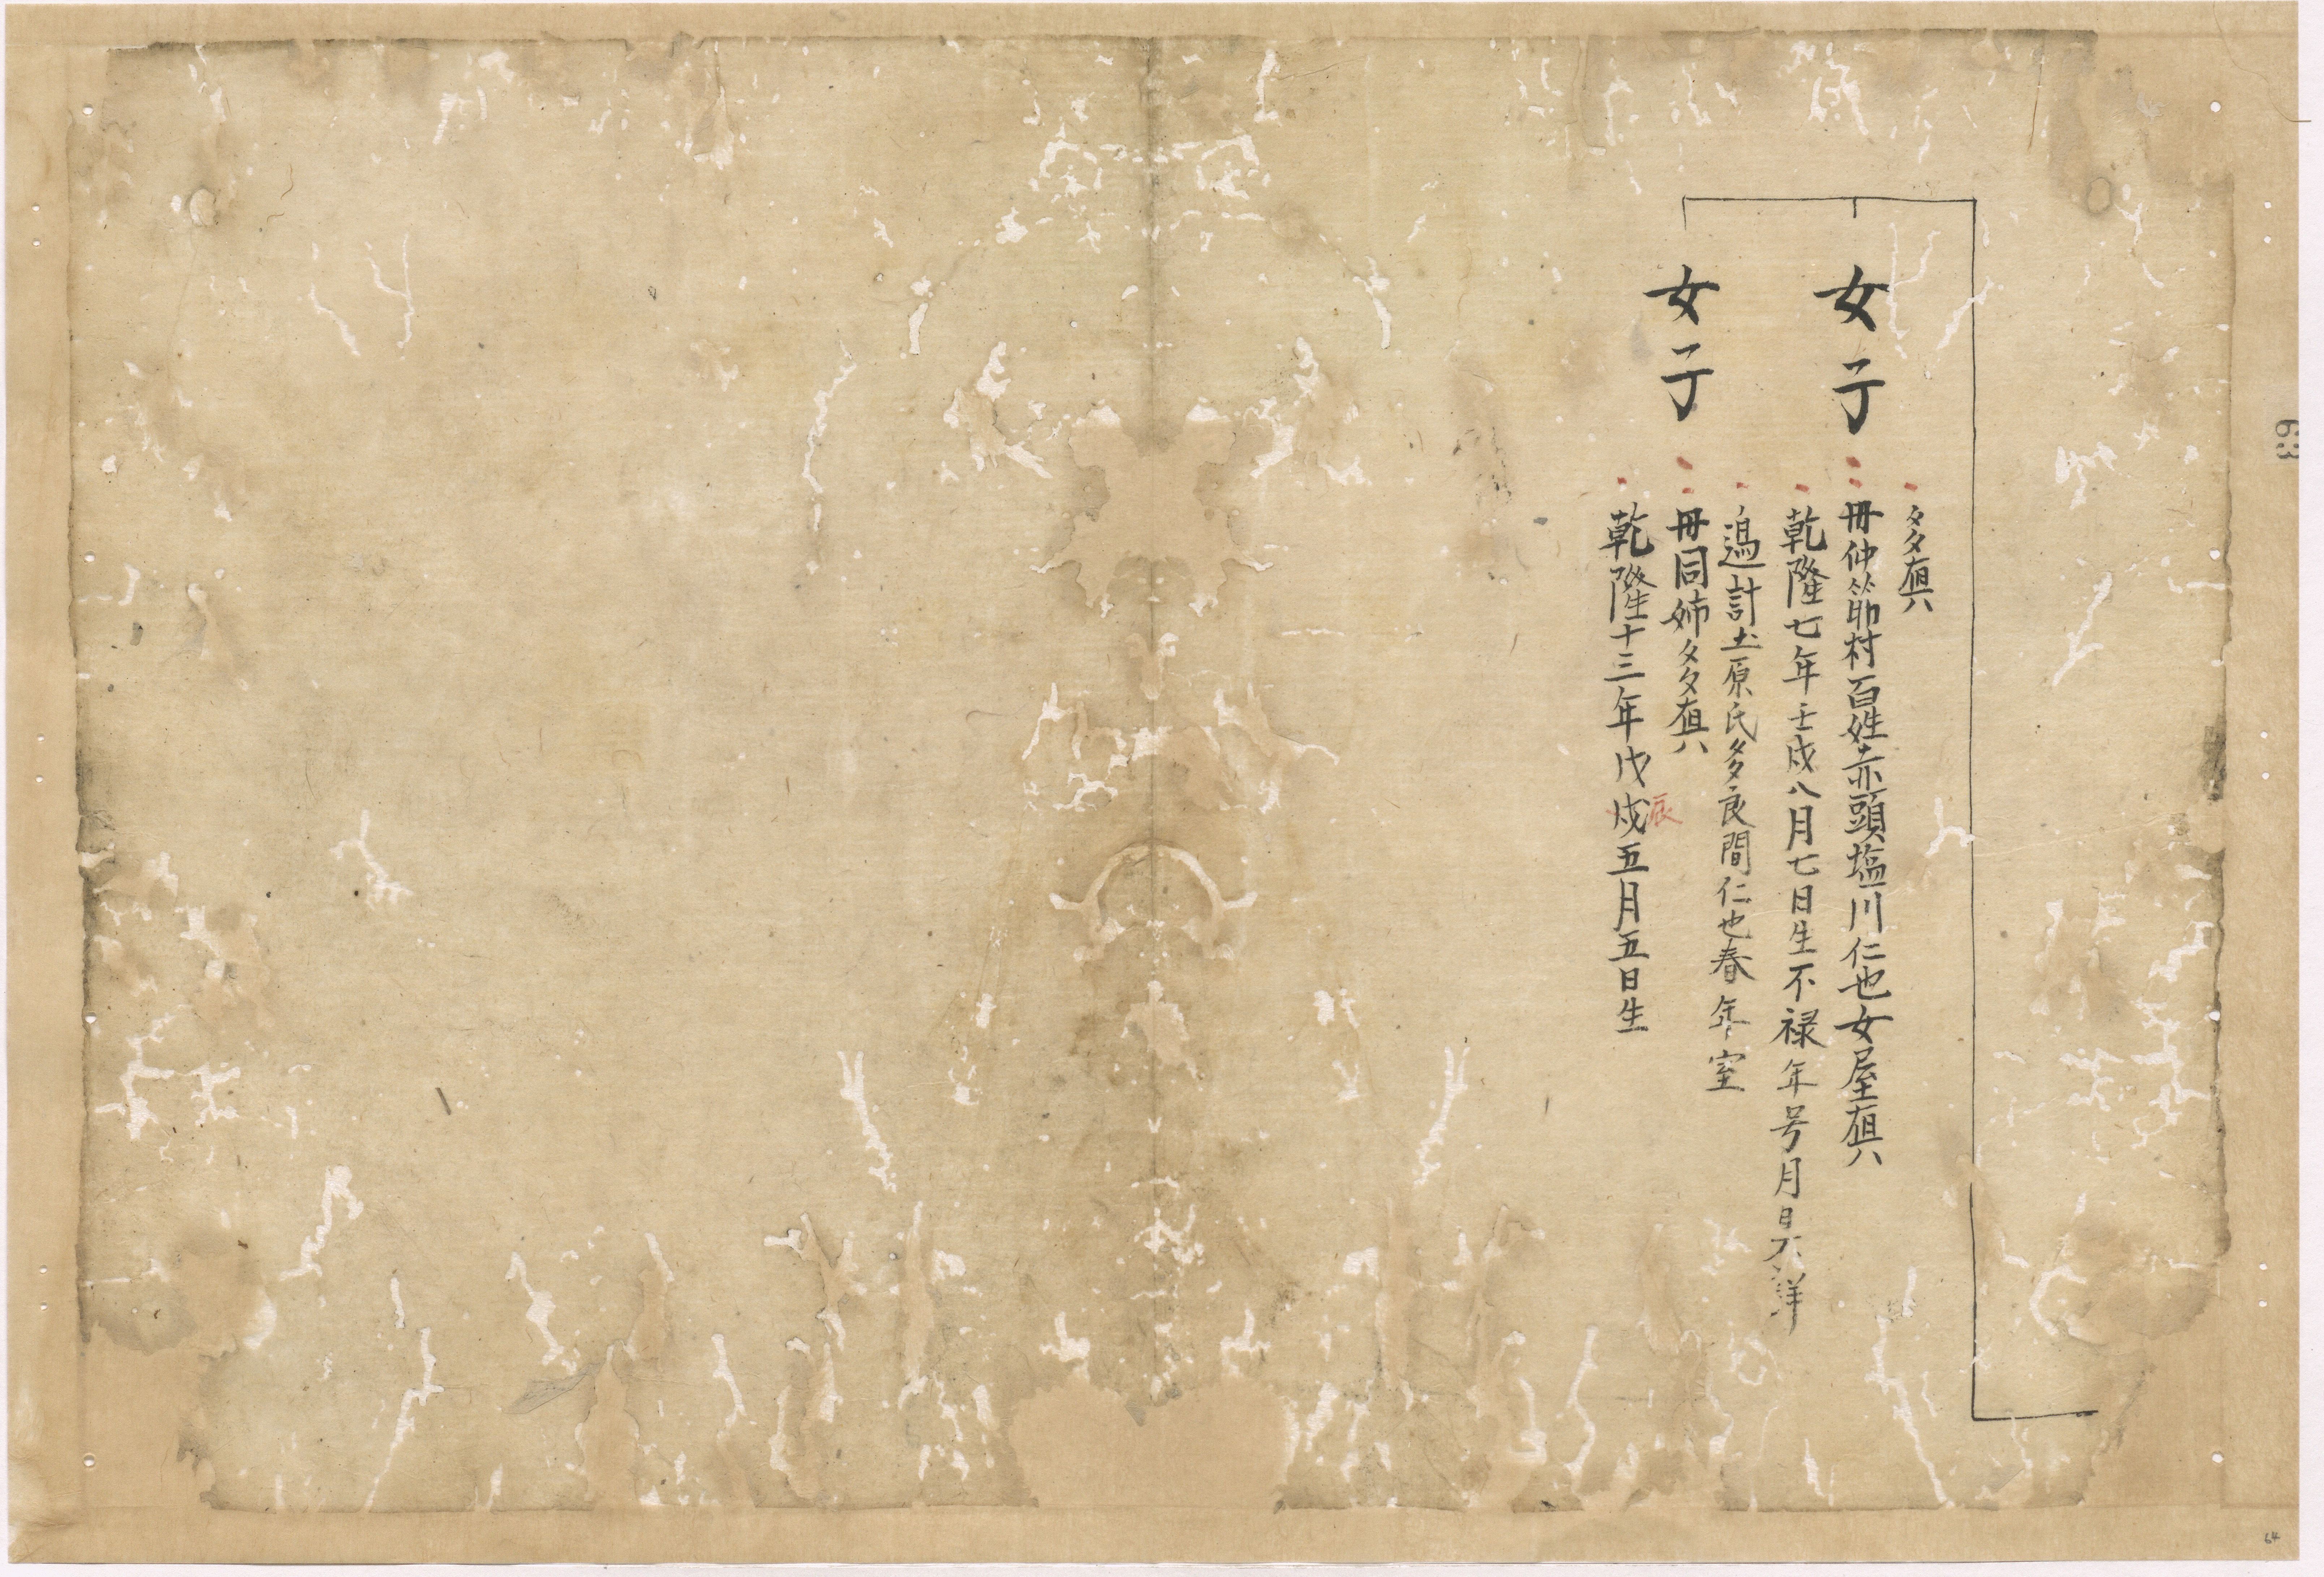 63
女子
多
母仲筋村百姓赤頭塩川仁也女屋
乾隆七年壬戌八月七日生不禄年号月日不詳
適計土原氏多良間仁也春年室
女子
母同姉多
乾隆十三年戊戌五月五日生
辰
64